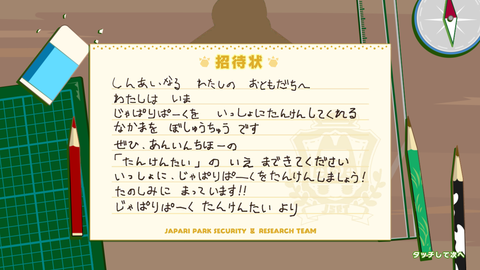 招待状
しんあいなる わたしの おともだちへ
わたしは いま
じゃぱりぱーくを いっしょにたんけんしてくれる
なかまを ぼしゅうちゅう です
ぜひ、あんいんちほーの
「たんけんたい」の いえ まできてください
いっしょに、じゃぱりぱーくをたんけんしましょう!
たのしみに まっています!!
じゃぱりぱーく たんけんたい より
JAPARI PARK SECURITY & RESEARCH TEAM
タッチして次へ